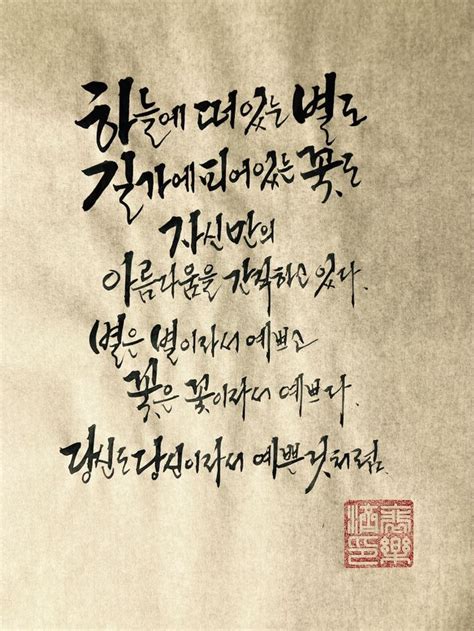 하늘에 떠있는 별도
길가에피어있는 꽃도
자신만의
아름다움을 간직하고 있다.
별은 별이라서 예쁘고
꽃은 꽃이라서 예쁘다.
당신도당신이라서 예쁜것처럼.